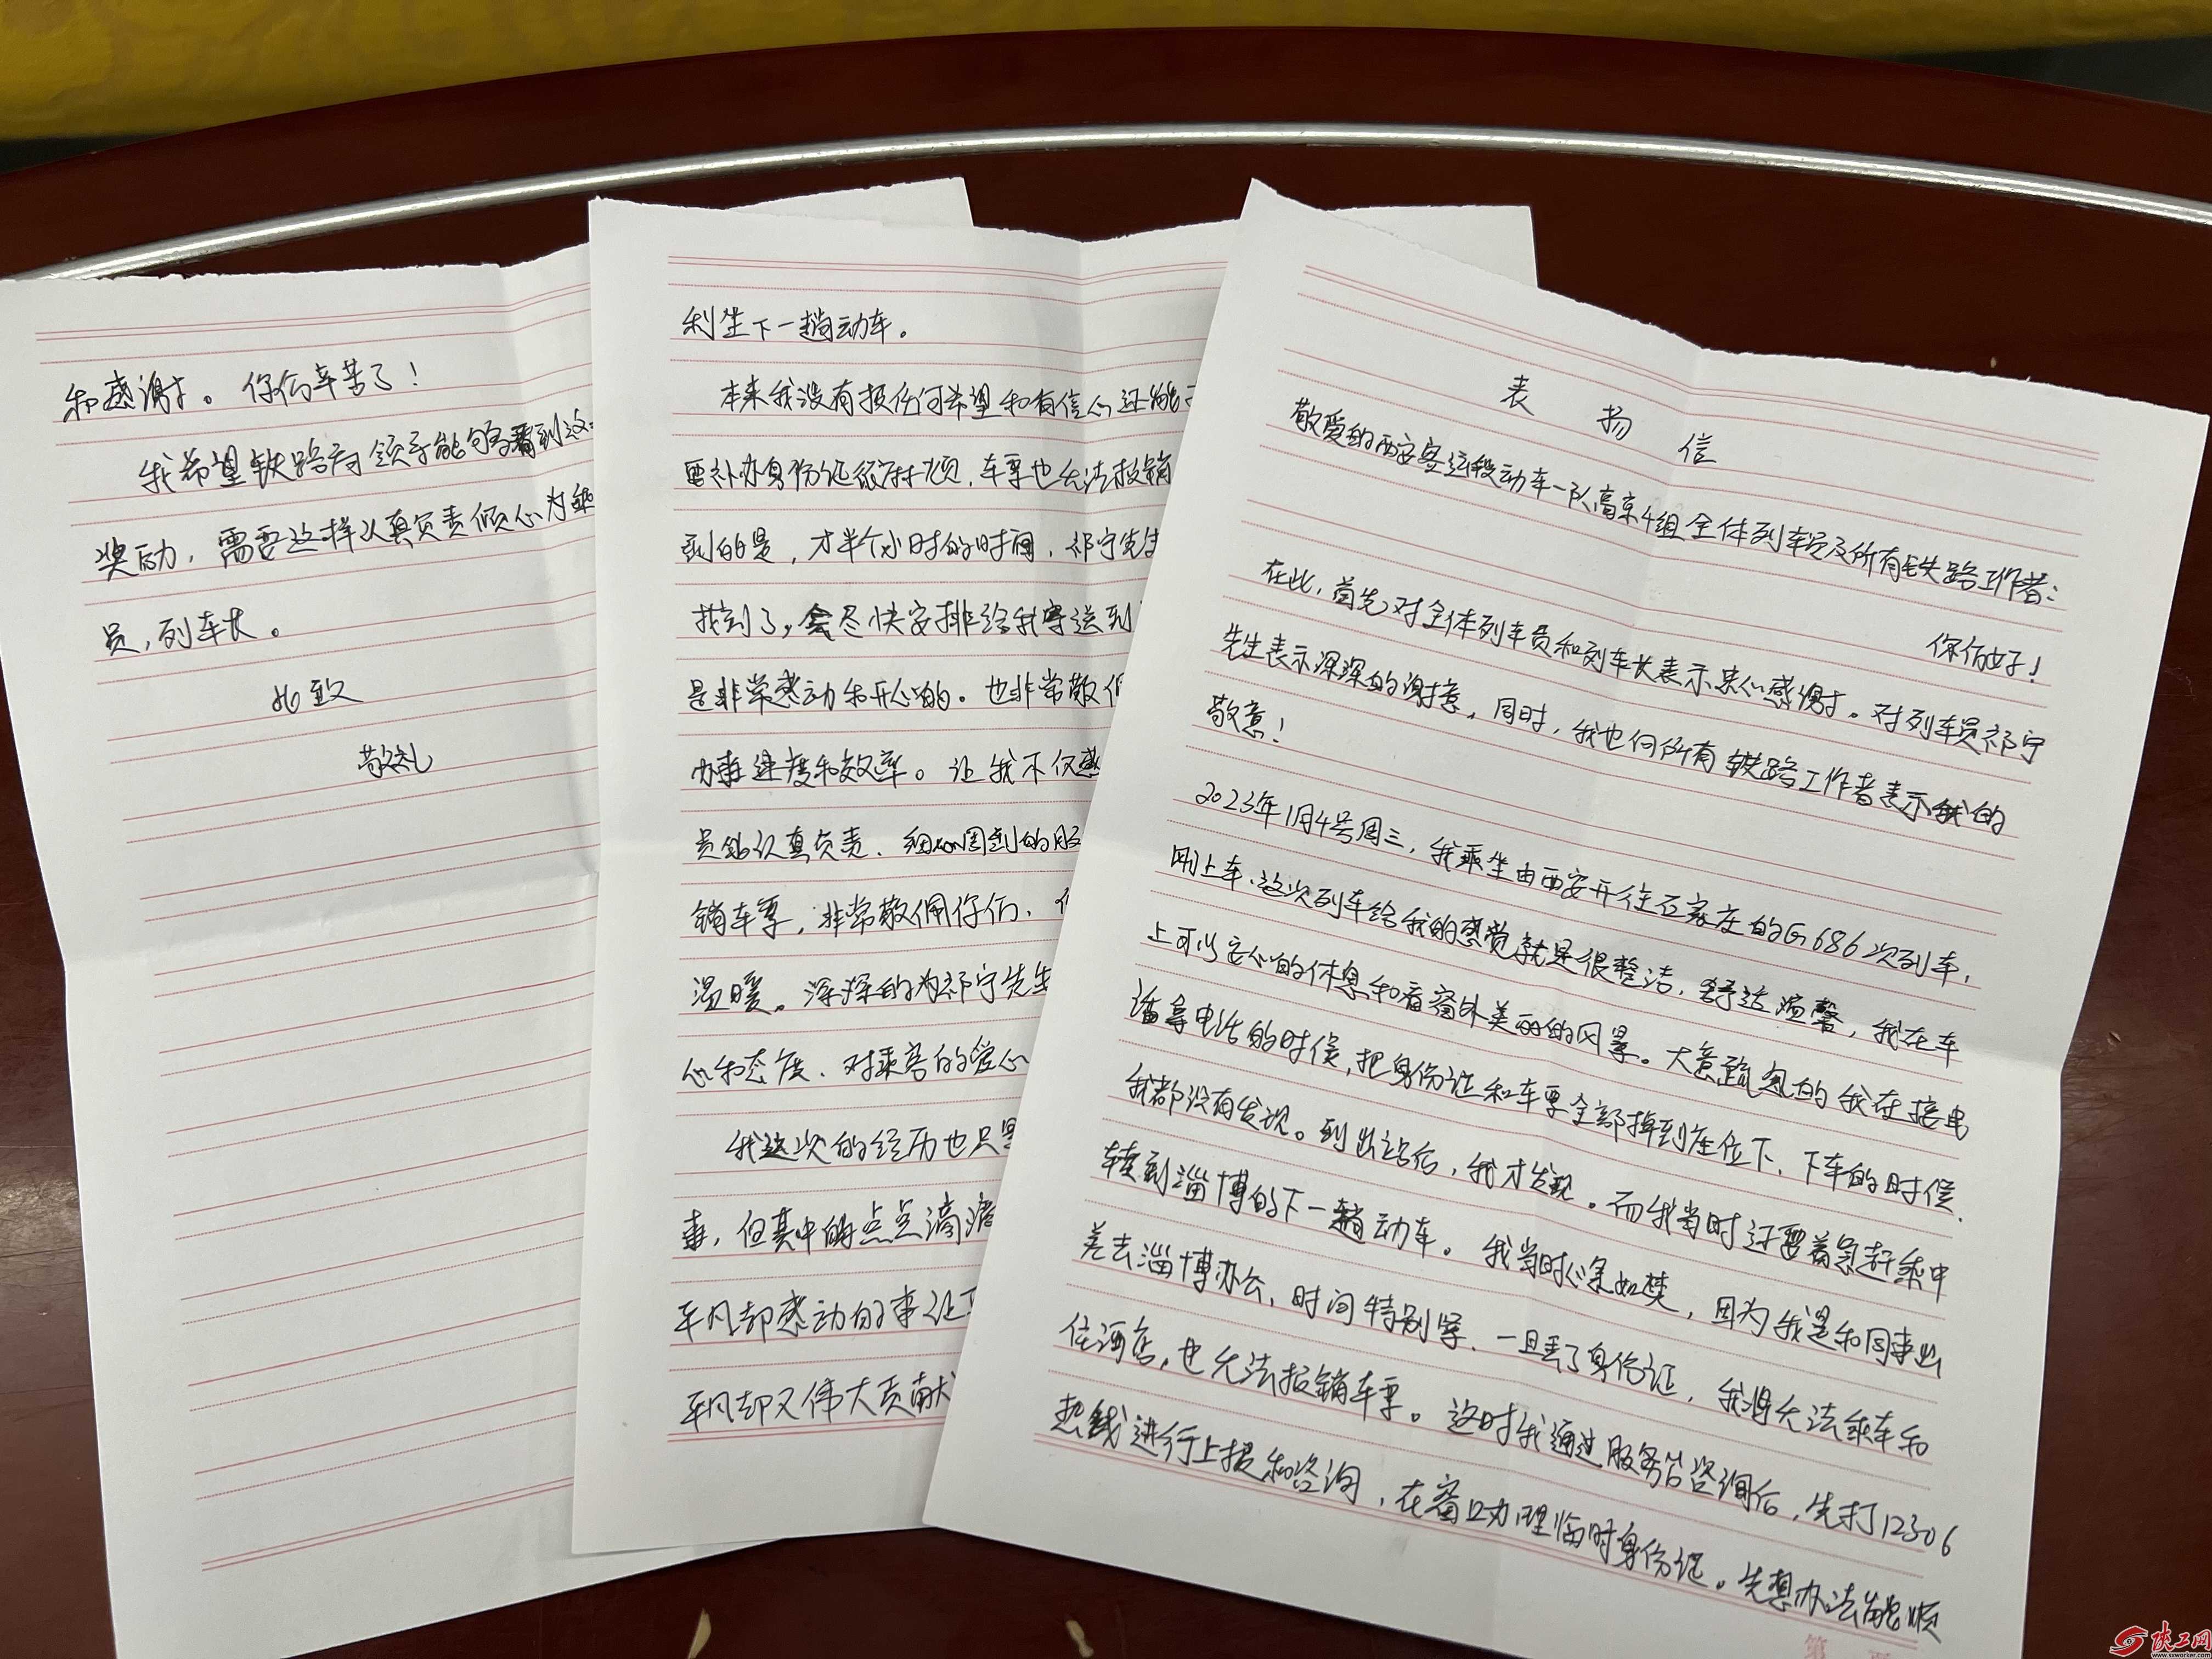 表扬信
敬爱的西安客运段动车一队高京4组全体列车员及所有铁路工作者:
你们好!
在此,首先对全体列车员和列车长表示衷心感谢。对列车员祁宁
先生表示深深的谢意,同时,我也向所有铁路工作者表示我的
敬意!
2023年1月4号周三,我乘坐由西安开往石家庄的G686次列车,
刚上车、这次列车给我的感觉就是很整洁,舒适温馨,我在车
上可以安心的休息和看窗外美丽的风景。大意疏忽的我在接电
话拿电话的时候,把身份证和车票全部掉到座位下、下车的时候、
我都没有发现。到出站后,我才发现。而我当时还要着急赶乘中
转到淄博的下一趟动车。我当时心急如焚,因为我是和同事出
差去淄博办公,时间特别紧、一旦丢了身份证,我将无法乘车和
住酒店,也无法报销车票。这时我通过服务台咨询后,先打12306
热线进行上报和咨询,在窗口办理临时身份证。先想办法能顺
利坐下一趟动车。
本来我没有报任何希望和有信心还能
要补办身份证很麻烦,车票也无法报销
到的是,才半个小时的时间,祁宁先生
找到了,会尽快安排给我寄送到
是非常感动和开心的。也非常敬佩
办事速度和效率。让我不仅感
员的认真负责、细心周到的服
销车票,非常敬佩你们、
温暖。深深的为祁宁先生
心和态度、对乘客的爱心
我这次的经历也只是
事,但其中的点点滴滴
平凡却感动的事让
平凡却又伟大贡献
和感谢。你们辛苦了!
我希望铁路局领导能够看到这
奖励,需要这样认真负责倾心为乘
员,列车长。
此致
敬礼
第 页
陕工网
www.sxworker.com